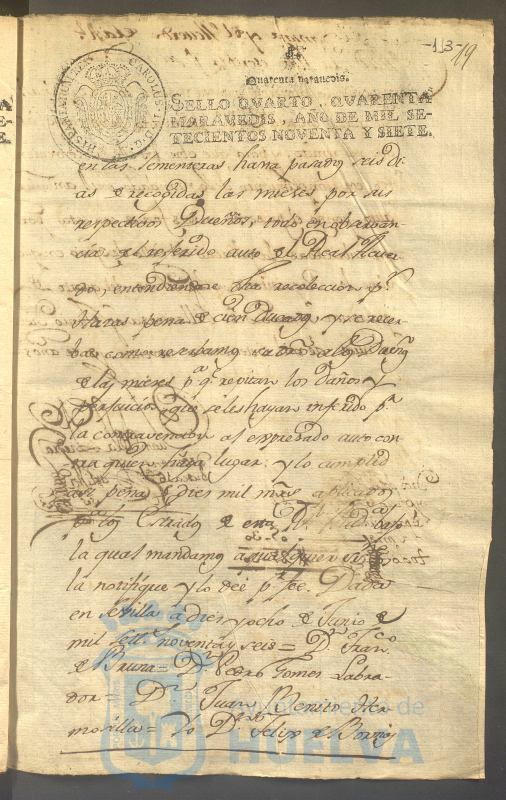 -13- 19
Quarenta marauedis.
SELLO QVARTO, QVARENTA
MARAVEDIS, AÑO DE MIL SE-
TECIENTOS NOVENTA Y SIETE.
HISPANIARUM REX CAROLUS IV D.G.
en las sementeras hasta pasados seis di-
as de recogidas las mieses por sus
respectivos Dueños, todo en observan-
cia del referido auto del Real Acuer-
do, entendiendose dha recoleccion pr
Hazas pena de cien Ducados, y se reser-
ba como reserbamos su dro a los Dueños
de las mieses pa q. repitan los daños y
perjuicios que se les hayan inferido pr
la contravencion al expresado auto con-
tra quien haya lugar: y lo cumplid
asi pena de diez mil mrs aplicados
los Estrados de esta Rl Audª bajo
la qual mandamos a qualquier
la notifique y lo dé pr fee. Dada
en Sevilla a diez y ocho de Junio de
mil settos noventa y seis = Dn Franco
de Bruna = Dn Pedro Gomez Labra-
dor = Dn Juan Benito Her-
mosilla = Yo Dn Felix de Bormas
Ayuntamiento de
HUELVA